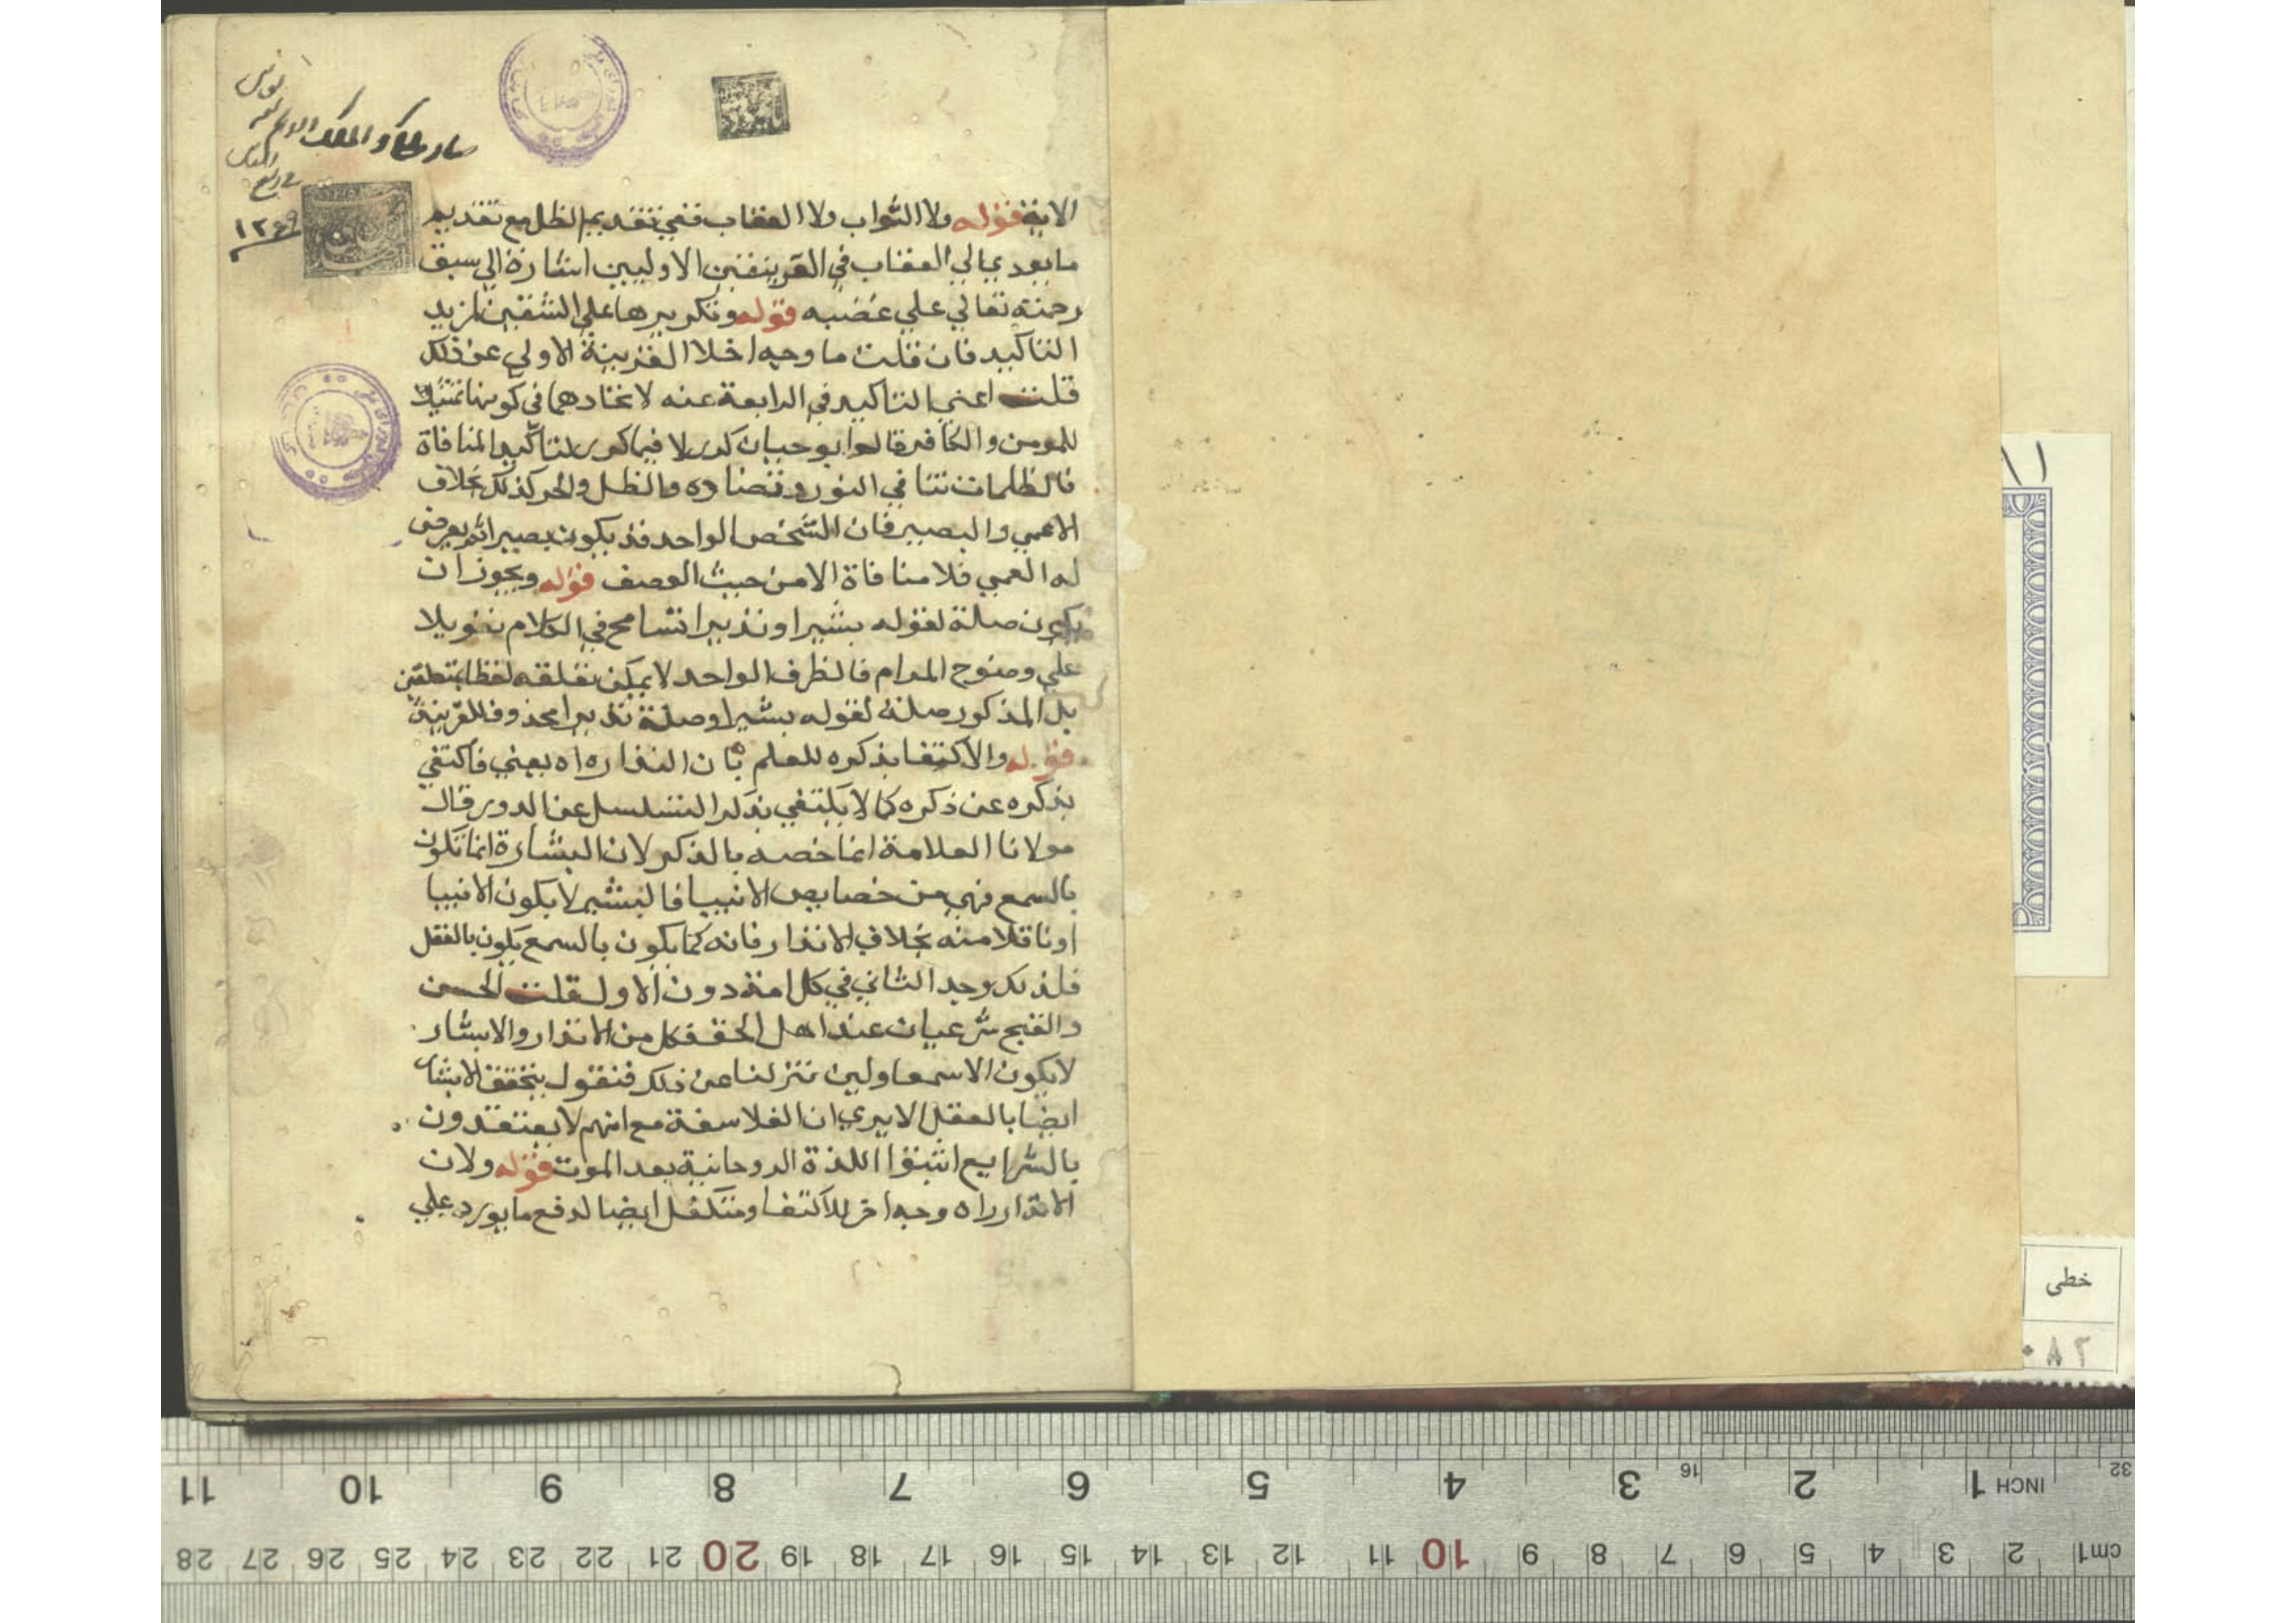 الاية قوله ولا الثواب ولا العقاب ففي تقديم الظل مع تقديم
ما يودي الي العقاب في القرينتين الاوليين اشارة الي سبق
رحمته تعالي علي غضبه قوله وتكريرها علي الشقين لمزيد
التاكيد فان قلت ما وجه اخلا القرينة الاولي عن ذلك
قلت اعني التاكيد في الرابعة عنه لاتحادهما في كونها تمثيلا
للمومن والكافر قال ابو حيان كرر لا فيما كرر لتاكيد المنافاة
فالظلمات تنافي النور وتضاده والظل والحر كذلك بخلاف
الاعمي والبصير فان الشخص الواحد قد يكون بصيرا ثم يعرض
له العمي فلا منافاة الا من حيث الوصف قوله ويجوز ان
يكون صلة لقوله بشيرا ونذيرا تسامح في الكلام تعويلا
علي وضوح المرام فالظرف الواحد لا يمكن تعلقه لفظا بمتعلقين
بل المذكور صلة لقوله بشيرا وصلة نذيرا محذوف للقرينة
قوله والاكتفا بذكره للعلم بان النذاره اه يعني فاكتفي
بذكره عن ذكره كما لا يكتفي بذكر التسلسل عن الدور قال
مولانا العلامة انما خصه بالذكر لان البشارة انما تكون
بالسمع فهي من خصايص الانبيا فالبشير لا يكون الا نبيا
او ناقلا منه بخلاف الانذار فانه كما يكون بالسمع يكون بالعقل
فلذلك وجد الثاني في كل امة دون الاول قلت الحسن
والقبح شرعيان عند اهل الحق فكل من الانذار والابشار
لا يكون الا سمعا ولين تنزلنا عن ذلك فنقول يتحقق الابشار
ايضا بالعقل الا يري ان الفلاسفة مع انهم لا يعتقدون
بالشرايع اثبتوا اللذة الروحانية بعد الموت قوله ولان
الانذار اه وجه اخر للاكتفا ومتكفل ايضا لدفع ما يورد علي
١٢٩٩
خطی
11 10 9 8 7 6 5 4 3 2 1 INCH
16 32
28 27 26 25 24 23 22 21 20 19 18 17 16 15 14 13 12 11 10 9 8 7 6 5 4 3 2 cm1